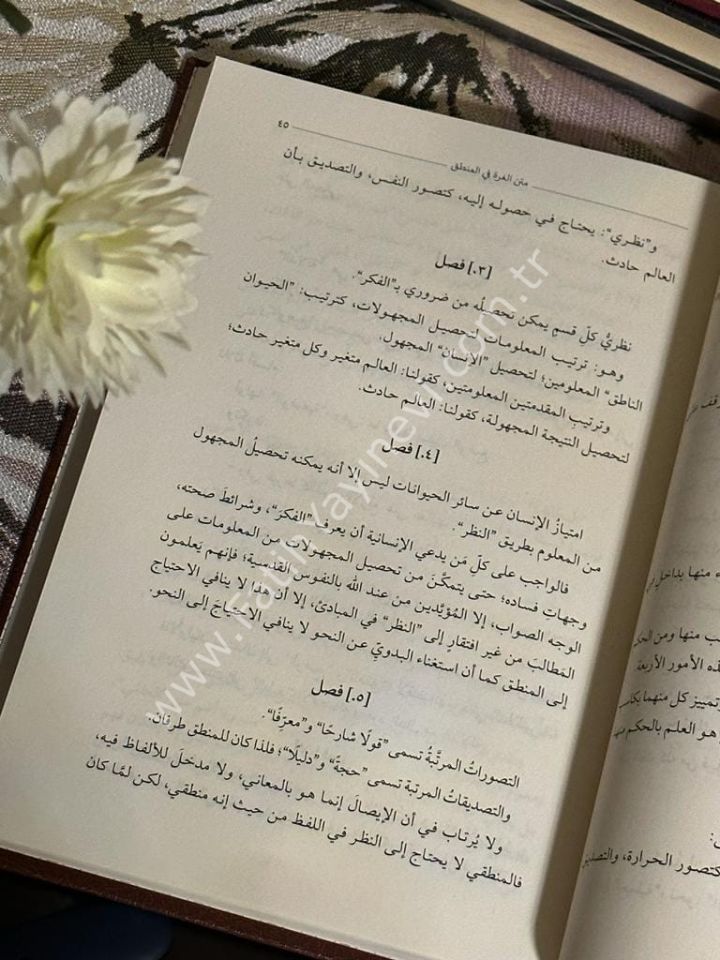 ٤٥
متن الغرة في المنطق
و"نظري": يحتاج في حصوله إليه، كتصور النفس، والتصديق بأن
العالم حادث.
[٣.] فصل
نظريُّ كلِّ قسمٍ يمكن تحصيلُه من ضروري بـ"الفكر".
وهو: ترتيب المعلومات لتحصيل المجهولات، كترتيب: "الحيوان
الناطق" المعلومين؛ لتحصيل "الإنسان" المجهول.
وترتيب المقدمتين المعلومتين، كقولنا: العالم متغير وكل متغير حادث؛
لتحصيل النتيجة المجهولة، كقولنا: العالم حادث.
[٤.] فصل
امتيازُ الإنسان عن سائر الحيوانات ليس إلا أنه يمكنه تحصيلُ المجهول
من المعلوم بطريق "النظر".
فالواجب على كلِّ مَن يدعي الإنسانية أن يعرف "الفكرَ"، وشرائطَ صحته،
وجهاتِ فساده؛ حتى يتمكَّنَ من تحصيل المجهولات من المعلومات على
الوجه الصواب، إلا المُؤيَّدين من عند الله بالنفوس القدسية؛ فإنهم يَعلمون
المَطالبَ من غير افتقارٍ إلى "النظر" في المبادئ، إلا أن هذا لا ينافي الاحتياج
إلى المنطق كما أن استغناء البدويّ عن النحو لا ينافي الاحتياجَ إلى النحو.
[٥.] فصل
التصوراتُ المرتَّبةُ تسمى "قولًا شارحًا" و"معرِّفًا".
والتصديقاتُ المرتبة تسمى "حجةً" و"دليلًا"؛ فلذا كان للمنطق طرفان.
ولا يُرتاب في أن الإيصالَ إنما هو بالمعاني، ولا مدخلَ للألفاظ فيه،
فالمنطقي لا يحتاج إلى النظر في اللفظ من حيث إنه منطقي، لكن لمَّا كان
منها بداخلٍ في
ب منها ومن الحد
ذه الأمور الأربعة
وتمييز كل منهما بكاسب
هو العلم بالحكم
كتصور الحرارة، والتصديق
www.FatihYayinevi.com.tr